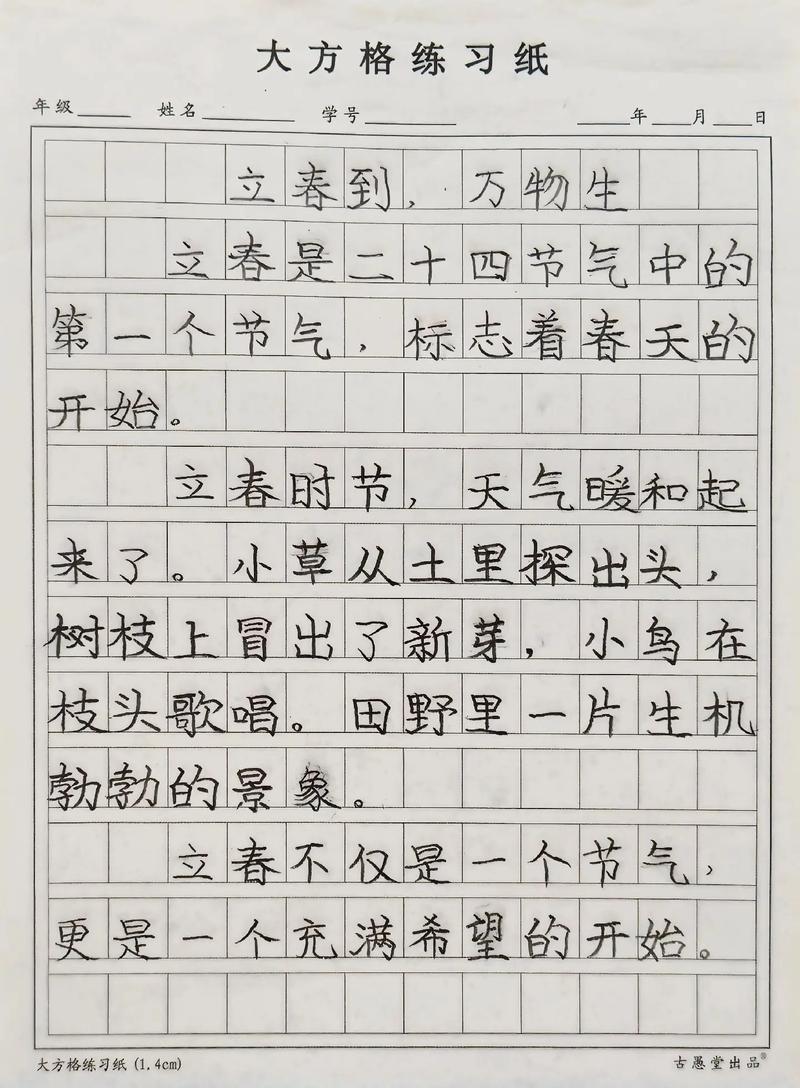 大方格练习纸
年级 姓名 学号 年 月 日
立春到，万物生
立春是二十四节气中的
第一个节气，标志着春天的
开始。
立春时节，天气暖和起
来了。小草从土里探出头，
树枝上冒出了新芽，小鸟在
枝头歌唱。田野里一片生机
勃勃的景象。
立春不仅是一个节气，
更是一个充满希望的开始。
大方格练习纸(1.4cm) 古愚堂出品®